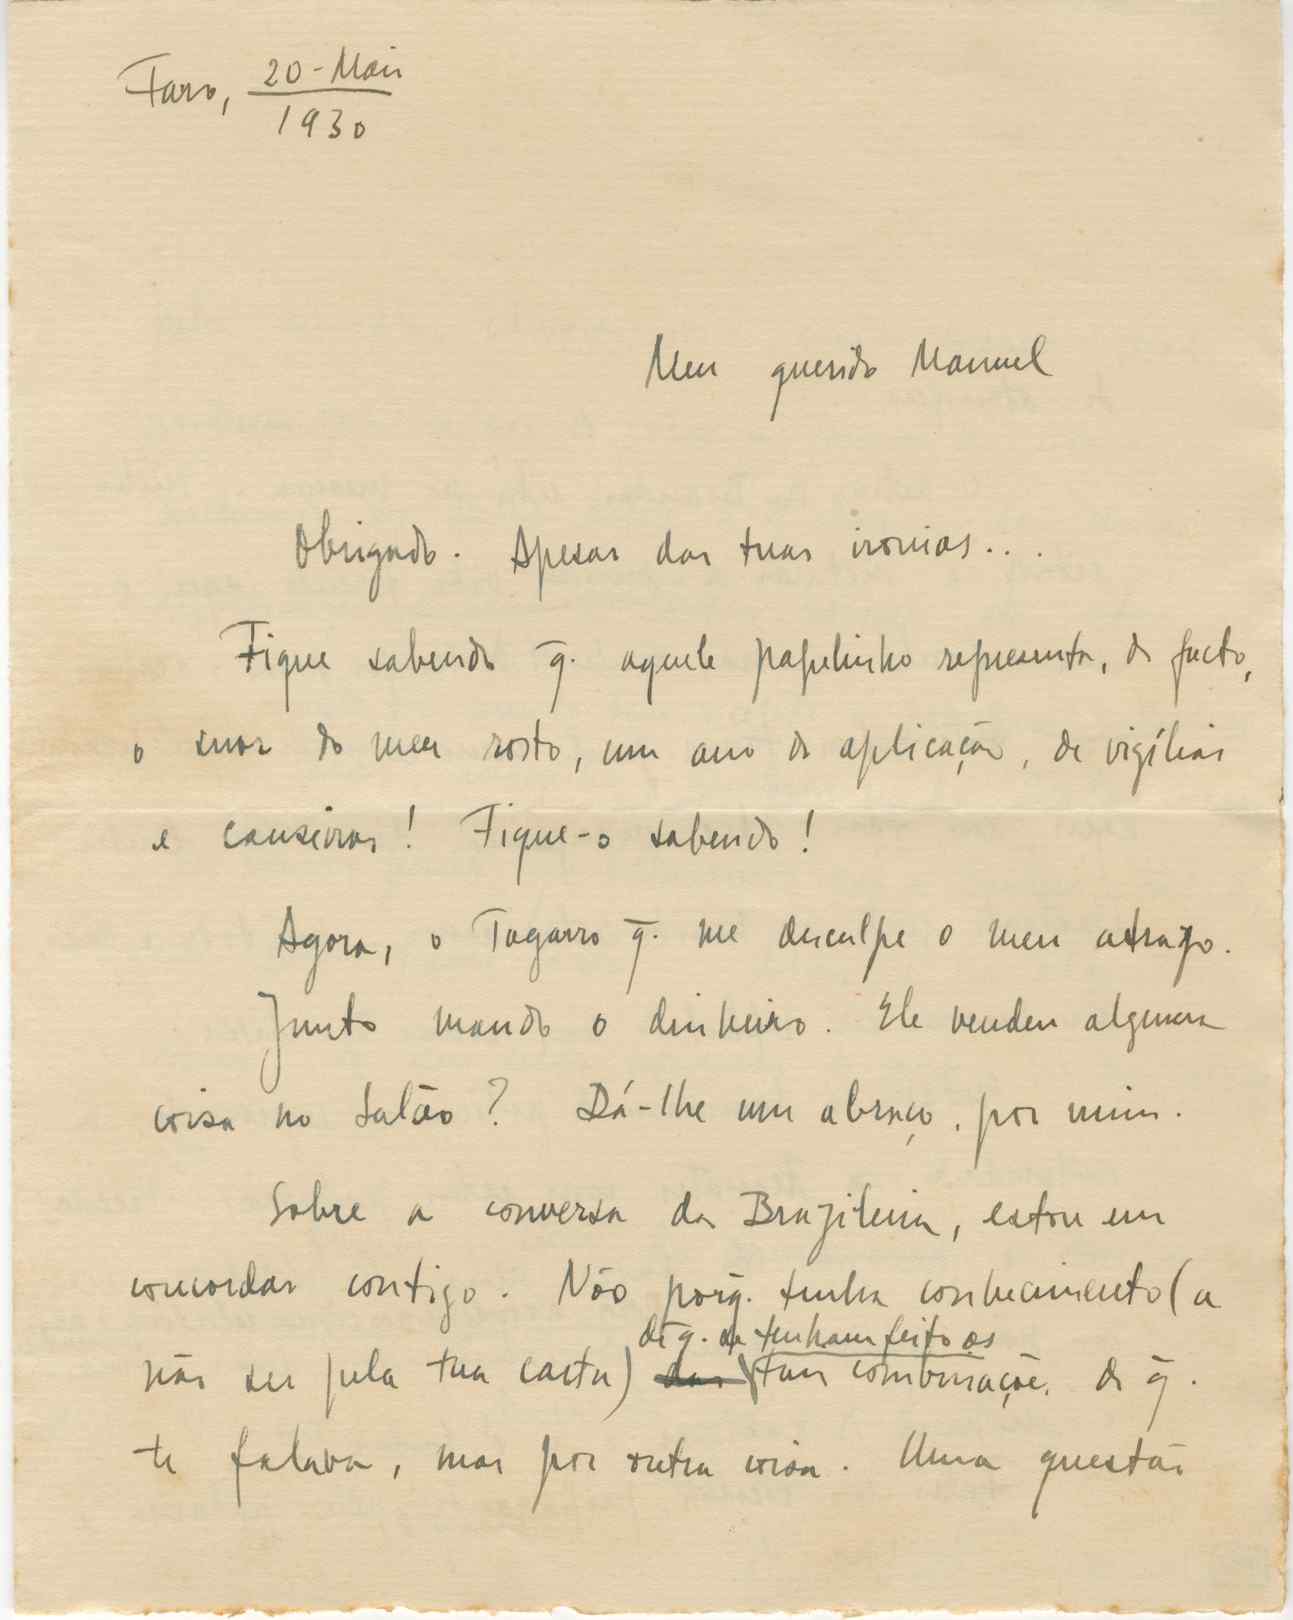 Faro, 20-Maio
1930
Meu querido Manuel
Obrigado. Apesar das tuas ironias...
Fique sabendo q̄. aquele papelinho representa, de facto,
o suor do meu rosto, um ano de aplicação, de vigílias
e canseiras! Fique-o sabendo!
Agora, o Tagarro q̄. me desculpe o meu atrazo.
Junto mando o dinheiro. Ele vendeu alguma
coisa no Salão? Dá-lhe um abraço, por mim.
Sobre a conversa da Brazileira, estou em
concordar contigo. Não porq̄. tenha conhecimento (a
de q̄. se tenham feito as
não ser pela tua carta) das tais combinações de q̄.
te falava, mas por outra coisa. Uma questão